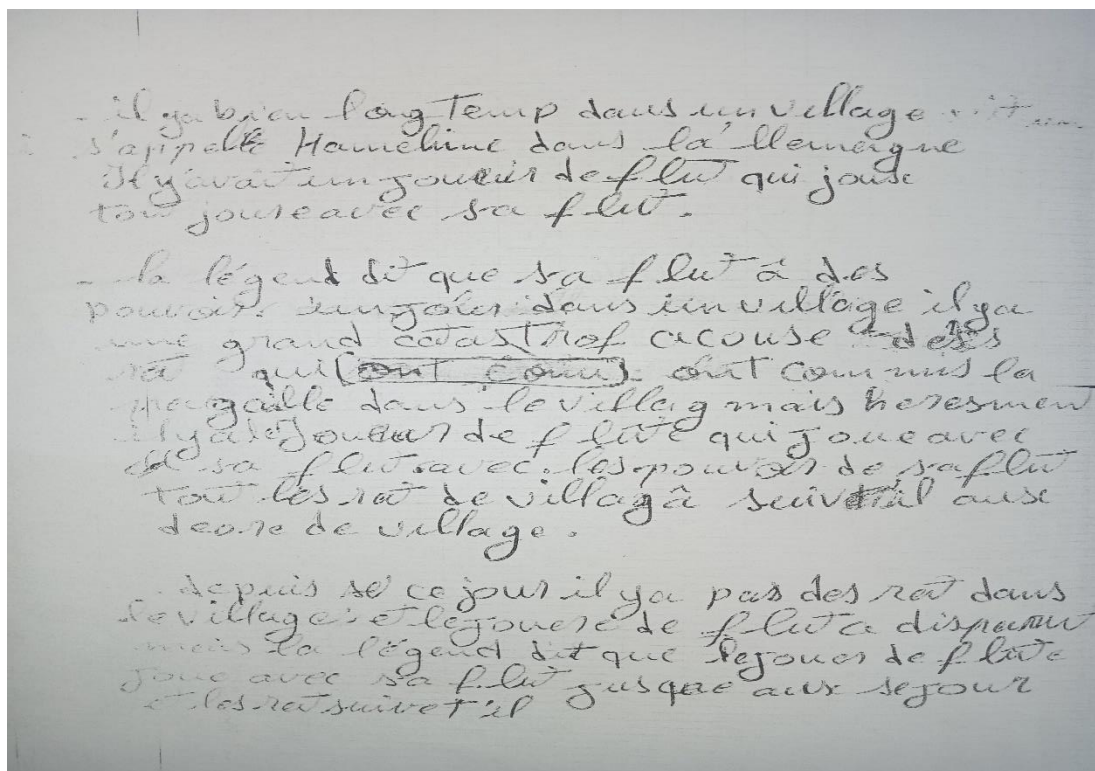 - il ya bien long Temp dans un village
s'appelle Hameline dans la llemeigne
il y'avait un joueur de flut qui jouse
tou jouse avec sa flut.
- la légend dit que sa flut â des
pouvoir. un jour dans un village il ya
une grand catastrof acouse dess
rat qui (ont comis) ont commis la
pagaille dans le villag mais heresmen
il ya le Joueur de flute qui joue avec
sa flut. avec. les pouvoir de sa flut
tout les rat de villag â suivet il ause
deore de village.
depuis se ce jour il ya pas des rat dans
le village. et le jouere de flut a disparut
mais la légend dit que le joues de flute
joue avec sa flut jusque aux sejour
et les rat suivet'il